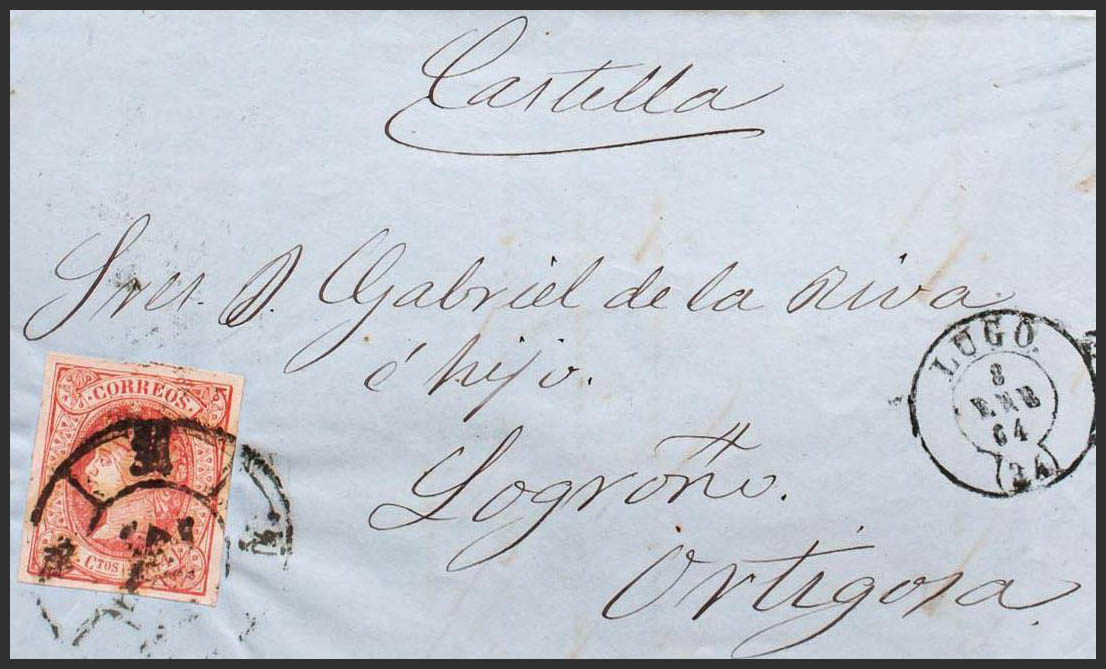 Castella
Sres. D. Gabriel de la Riva
é hijo.
Logroño.
Ortigosa
CORREOS.
CTOS
LUGO.
8
ENE
64
(24)